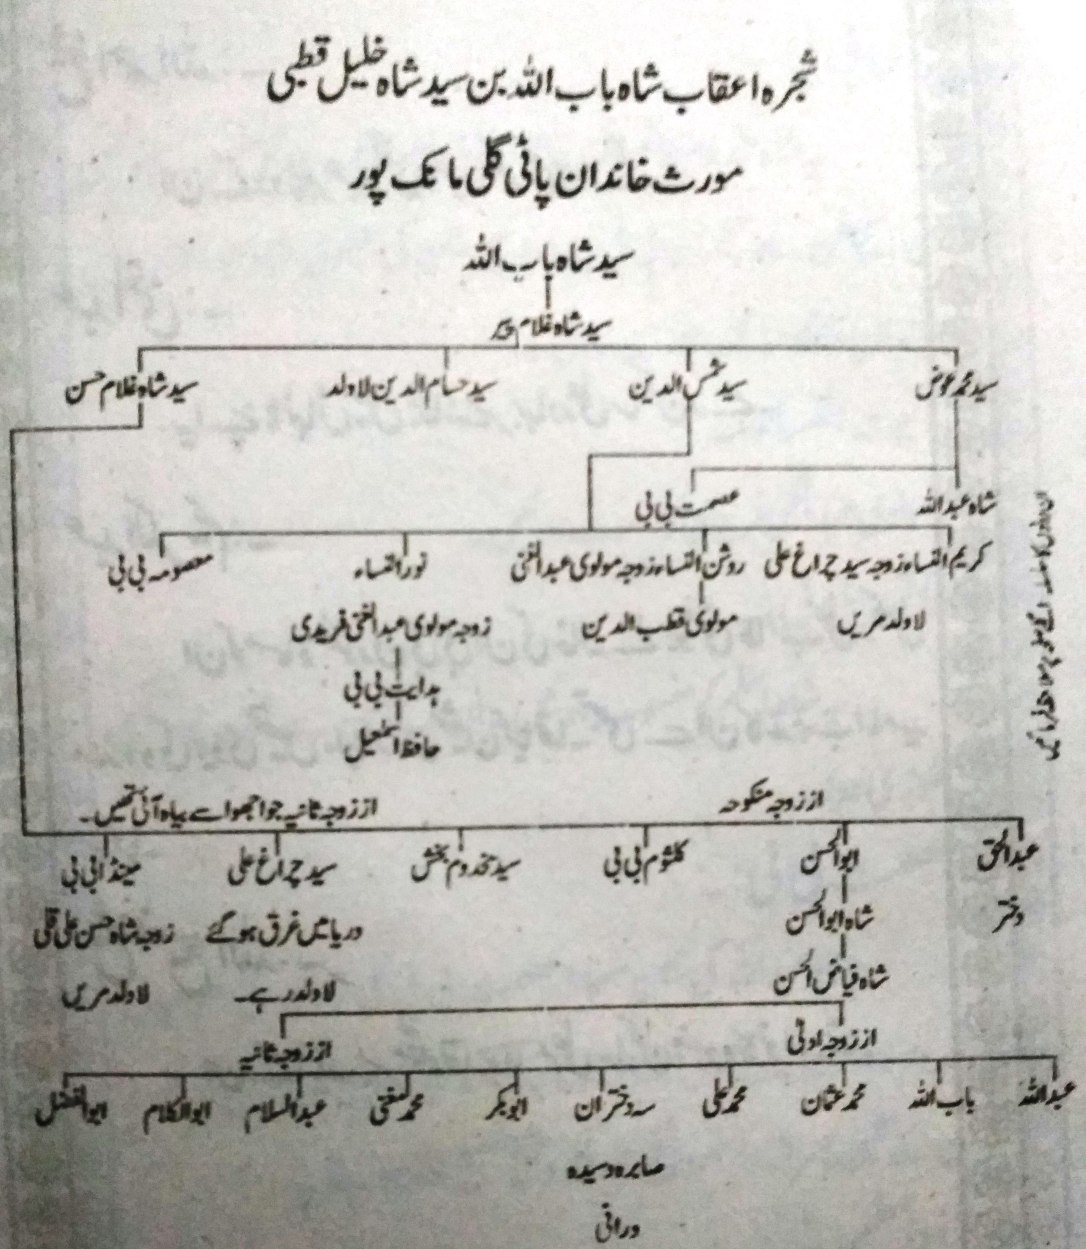 شجرہ اعقاب شاہ باب اللہ بن سید شاہ خلیل قطبی
مورث خاندان پائی گلی مانک پور
سید شاہ باب اللہ
سید شاہ غلام پیر
سید محمد عوض سید شمس الدین سید حسام الدین لاولد سید شاہ غلام حسن
شاہ عبد اللہ عصمت بی بی
کریم النساء زوجہ سید چراغ علی روشن النساء زوجہ مولوی عبد الغنی نور النساء معصومہ بی بی
لاولد مریں مولوی قطب الدین زوجہ مولوی عبد الغنی فریدی
ہدایت بی بی
حافظ اسمٰعیل
از زوجہ منکوحہ از زوجہ ثانیہ جو اجھوا سے بیاہ آئی تھیں۔
عبد الحق ابو الحسن کلثوم بی بی سید مخدوم بخش سید چراغ علی مینڈا بی بی
دختر شاہ ابو الحسن دریا میں غرق ہو گئے زوجہ شاہ حسن علی قلی
شاہ فیاض الحسن لاولد رہے۔ لاولد مریں
از زوجہ اولیٰ از زوجہ ثانیہ
عبد اللہ باب اللہ محمد عثمان محمد علی سہ دختران ابوبکر محمد مغنی عبد السلام ابو الکلام ابو الفضل
صابرہ و سیدہ
ورانی